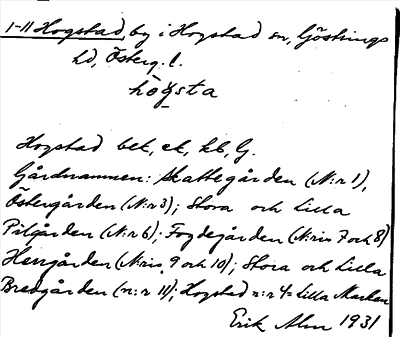 1-11 Hogstad, by i Hogstad sn, Göstrings
hd, Österg. l.
hògsta
Hogstad bet, ek, hb, G.
Gårdnamnen: Skattegården (N:r 1),
Östergården (N:r 3); Stora och Lilla
Pilgården (N:r 6); Fogdegården (N:ris 7 och 8)
Herrgården (N:ris 9 och 10); Stora och Lilla
Bredgården (n:r 11); Hogstad n:r 4 = Lilla Marken
Erik Alm 1931